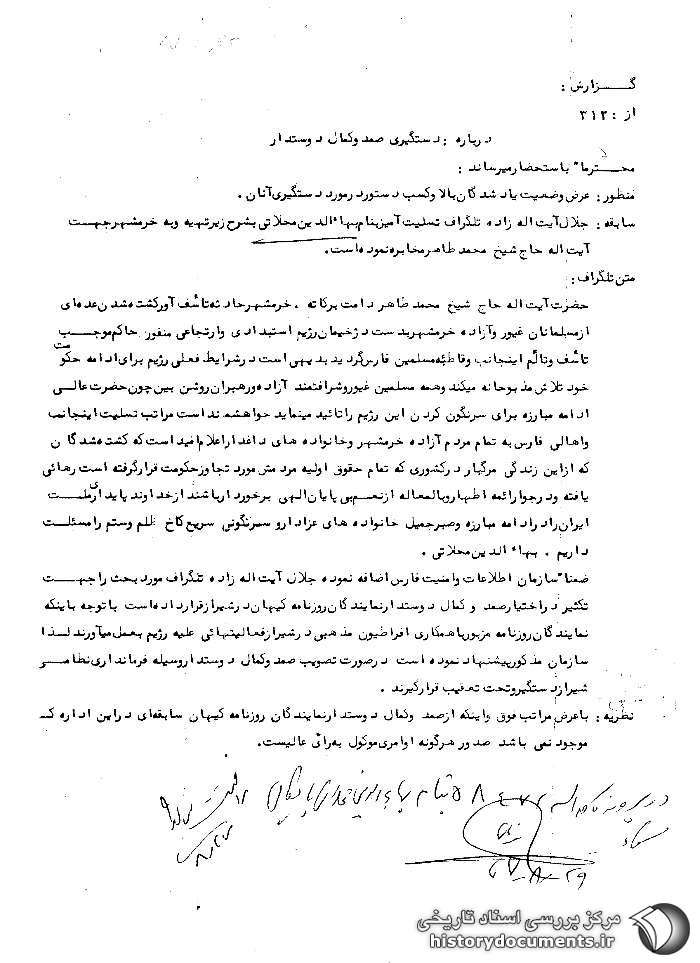 گـــزارش :
از : ۳۱۲
درباره : دستگیری صمد وکمال دوستدار
محـترما" باستحضارمیرساند :
منظور : عرض وضعیت یاد شد گان بالا وکسب دستوردرمورد دستگیری آنان .
سابقه : جلال آیت اله زاده تلگراف تسلیت آمیزبنام بهاءالدین محلاتی بشرح زیرتهیه وبه خرمشهرجهـت
آیت اله حاج شیخ محمد طاهر مخابره نموده است .
متن تلگراف :
حضرت آیت اله حاج شیخ محمد طاهر دامت برکاته . خرمشهرحادثه تأسف آورکشته شدن عده ای
ازمسلمانان غیور وآزاده خرمشهربدست دژخیمان رژیم استبدادی وارتجاعی منفور حاکم موجـــب
تأسف وتألم اینجانب وقاطبه مسلمین فارس گردید بدیهی است درشرایط فعلی رژیم برای ادامه حکومت
خود تلاش مذبوحانه میکند وهمه مسلمین غیوروشرافتمند آزاده ورهبران روشن بین چون حضرت عالـی
ادامه مبارزه برای سرنگون کردن این رژیم راتائید مینماید خواهشمند است مراتب تسلیت اینجانب
واهالی فارس به تمام مردم آزاده خرمشهر وخانواده های داغداراعلام فید است که کشته شدگا ن
که ازاین زندگی مرگبار درکشوری که تمام حقوق اولیه مردمش مورد تجاوزحکومت قرارگرفته است رهائی
یافته ودرجوارائمه اطهاروبالمعاله ازنعم بی پایان الهی برخوردارباشند ازخداوند پایداری ملـت
ایران رادرادامه مبارزه وصبرجمیل خانواده های عزادارو سرنگونی سریع کاخ ظلم وستم رامسئلت
داریم . بهاءالدین محلاتی .
ضمنا"سازمان اطلاعات وامنیت فارس اضافه نموده جلال آیت اله زاده تلگراف مورد بحث راجهـت
تکثیر دراختیارصمد و کمال دوستدارنمایندگان روزنامه کیهان درشیرازقرارداده است باتوجه باینکه
نمایندگان روزنامه مزبورباهمکاری افراطیون مذهبی درشیرازفعالیتهائی علیه رژیم بعمل میآورند لـذا
سازمان مذکورپیشنهاد نموده است درصورت تصویب صمد وکمال دوستداروسیله فرمانداری نظامـی
شیرازدستگیروتحت تعقیب قرارگیرند .
نظریه : باعرض مراتب فوق واینکه ازصمد وکمال دوستدارنمایندگان روزنامه کیهان سابقه ای دراین اداره کـه
موجود نمی باشد صدور هرگونه اوامری موکول به رأی عالیست .
مرکز بررسی اسناد تاریخی
historydocuments.ir